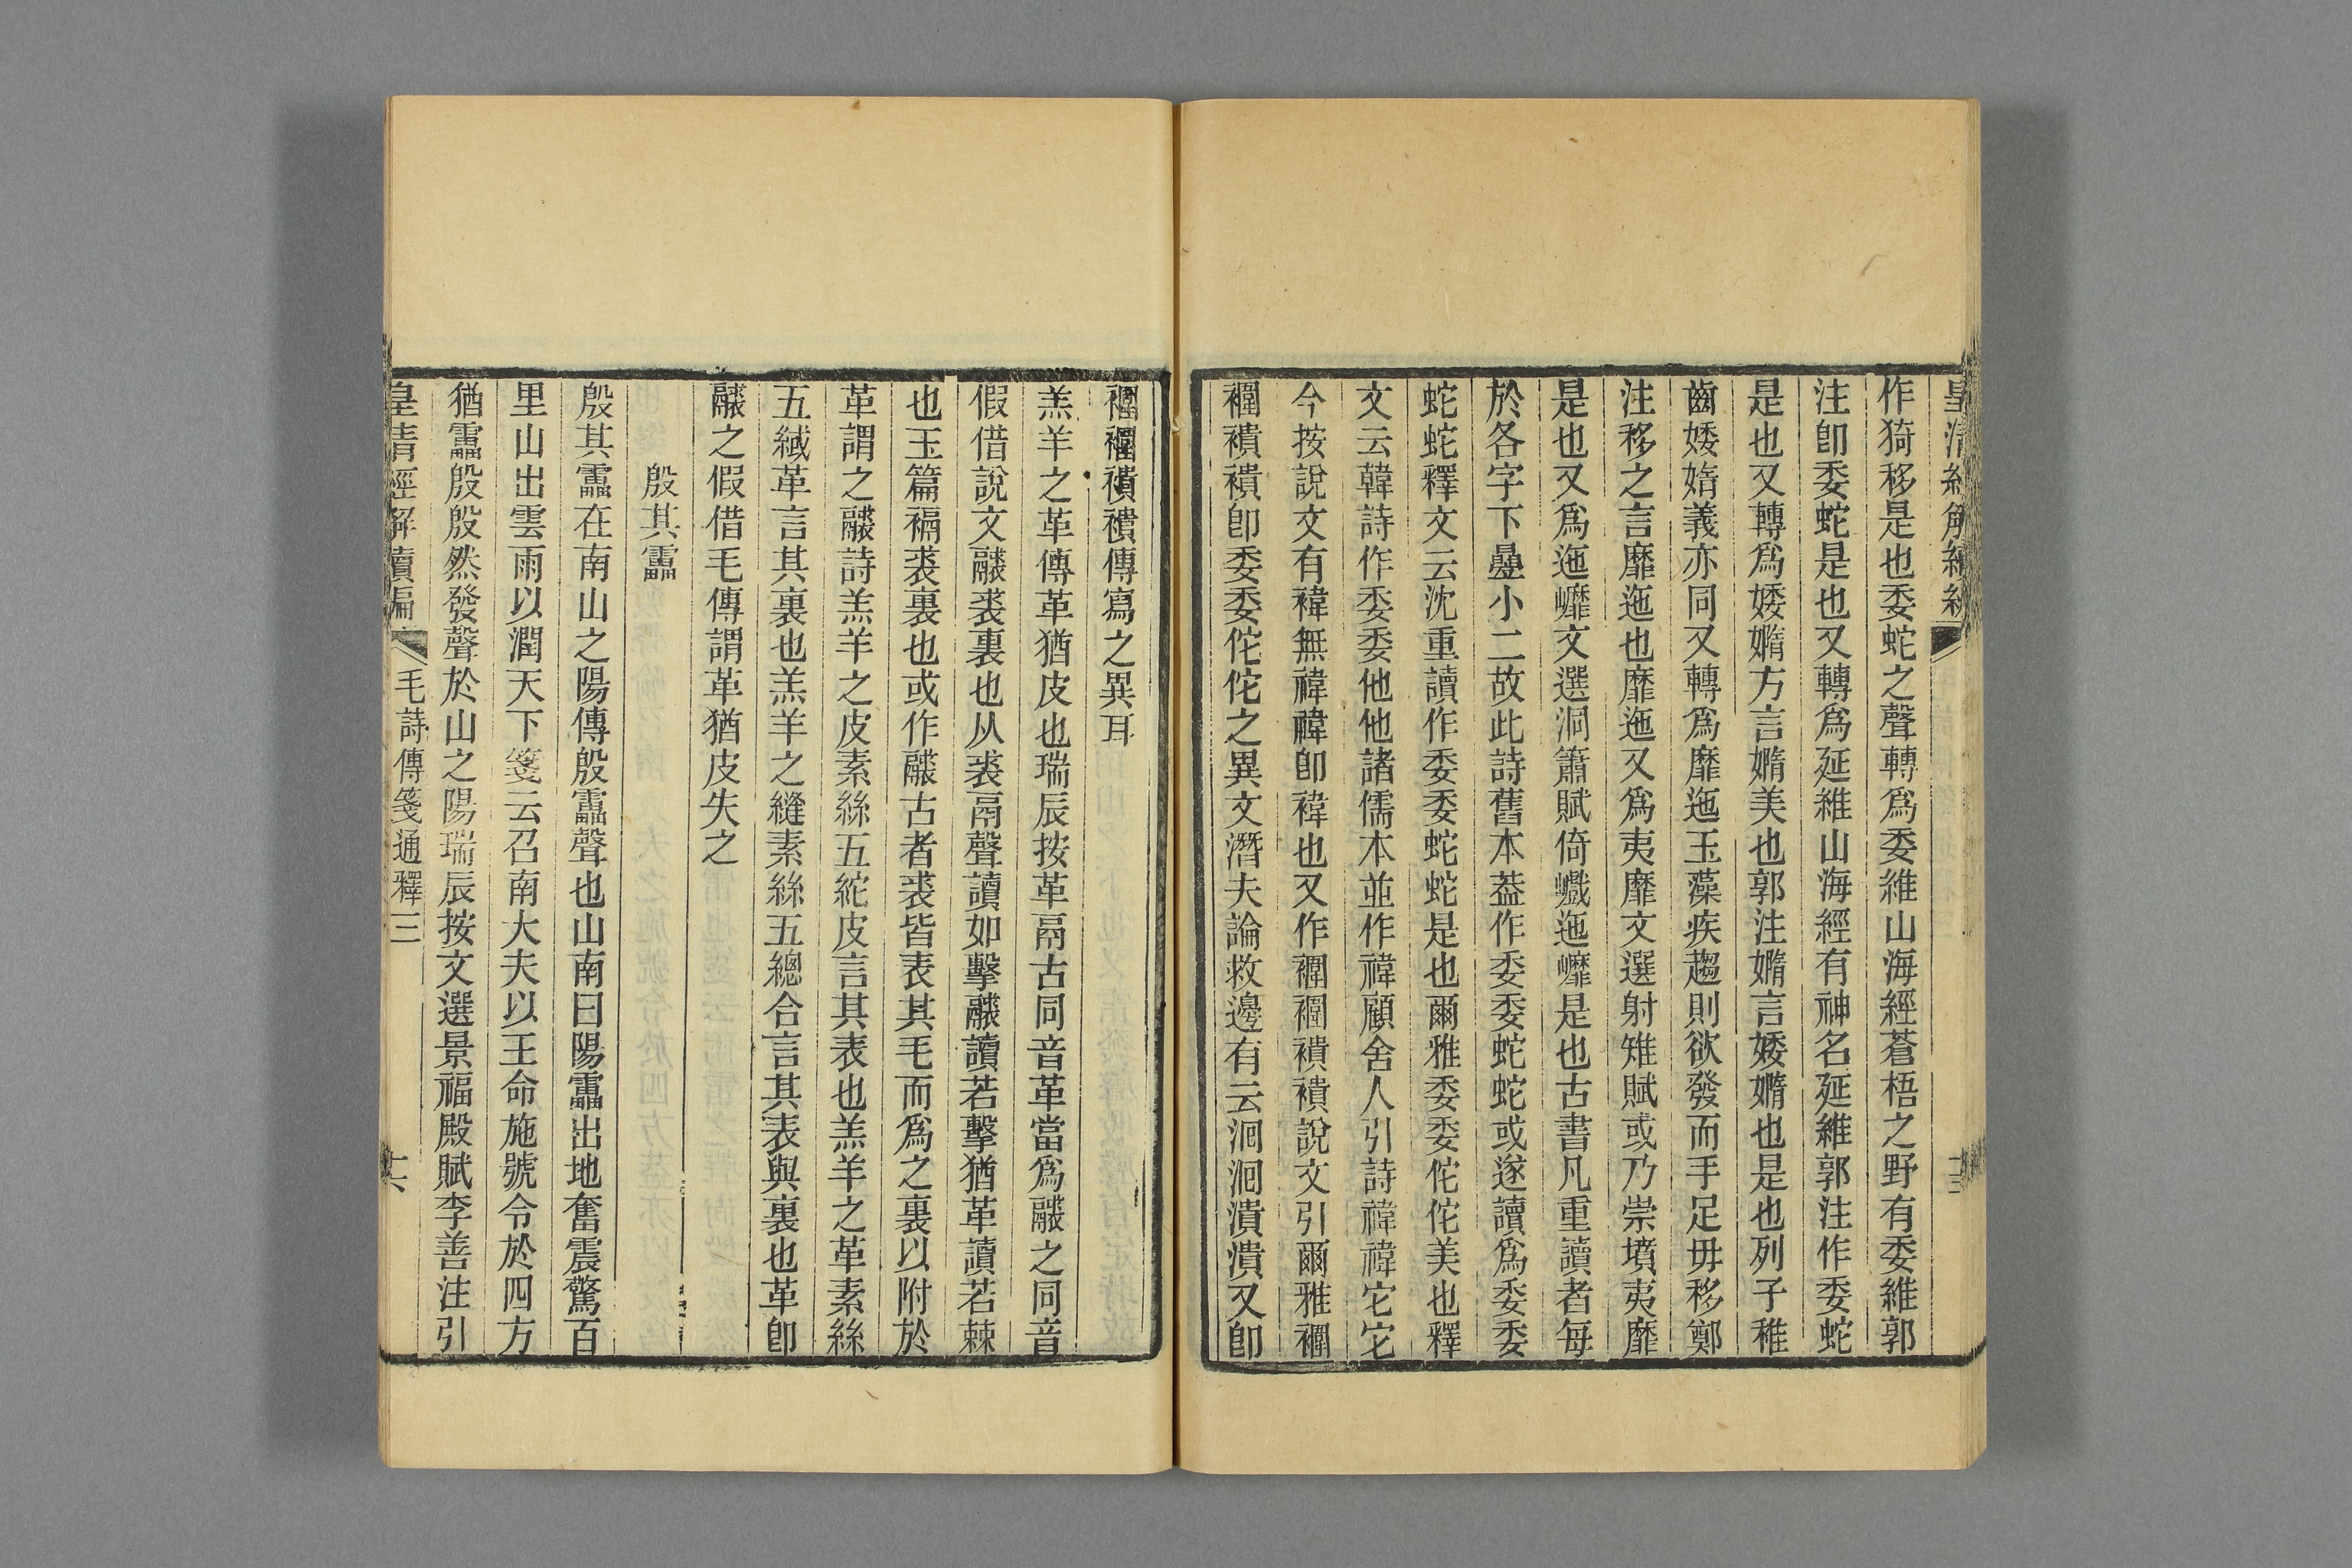 作猗移是也委蛇之聲轉爲委維山海經蒼梧之野有委維郭
注卽委蛇是也又轉爲延維山海經有神名延維郭注作委蛇
是也又轉爲婑媠方言媠美也郭注媠言婑媠也是也列子稚
齒婑媠義亦同又轉爲靡迤玉藻疾趨則欲發而手足毋移鄭
注移之言靡迤也靡迤又爲夷靡文選射雉賦或乃崇墳夷靡
是也又爲迤㠧文選洞簫賦倚巇迤㠧是也古書凡重讀者每
於各字下疊小二故此詩舊本葢作委委蛇蛇或遂讀爲委委
蛇蛇釋文云沈重讀作委委蛇蛇是也爾雅委委佗佗美也釋
文云韓詩作委委他他諸儒本並作禕顧舍人引詩禕禕它它
今按說文有褘無禕禕卽褘也又作襉襉襀襀說文引爾雅襉
襉襀襀卽委委佗佗之異文潛夫論救邊有云洄洄潰潰又卽
襉襉襀襀傳寫之異耳
羔羊之革傳革猶皮也瑞辰按革鬲古同音革當爲䪜之同音
假借說文䪜裘裏也从裘鬲聲讀如擊䪜讀若擊猶革讀若棘
也玉篇䙐裘裏也或作䪜古者裘皆表其毛而爲之裏以附於
革謂之䪜詩羔羊之皮素絲五紽皮言其表也羔羊之革素絲
五緎革言其裏也羔羊之縫素絲五總合言其表與裏也革卽
䪜之假借毛傳謂革猶皮失之
殷其靁
殷其靁在南山之陽傳殷靁聲也山南曰陽靁出地奮震驚百
里山出雲雨以潤天下箋云召南大夫以王命施號令於四方
猶靁殷殷然發聲於山之陽瑞辰按文選景福殿賦李善注引
皇清經解續編 毛詩傳箋通釋三 十六